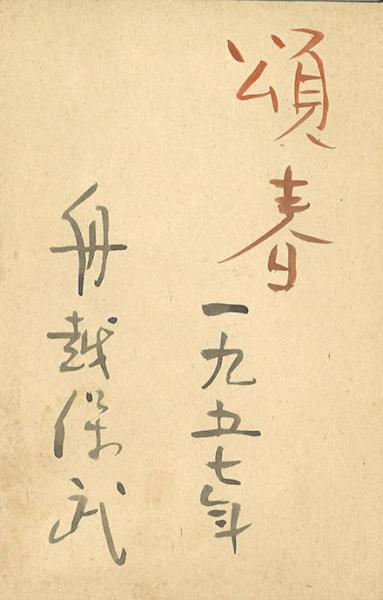 頌春
一九五七年
舟越保武